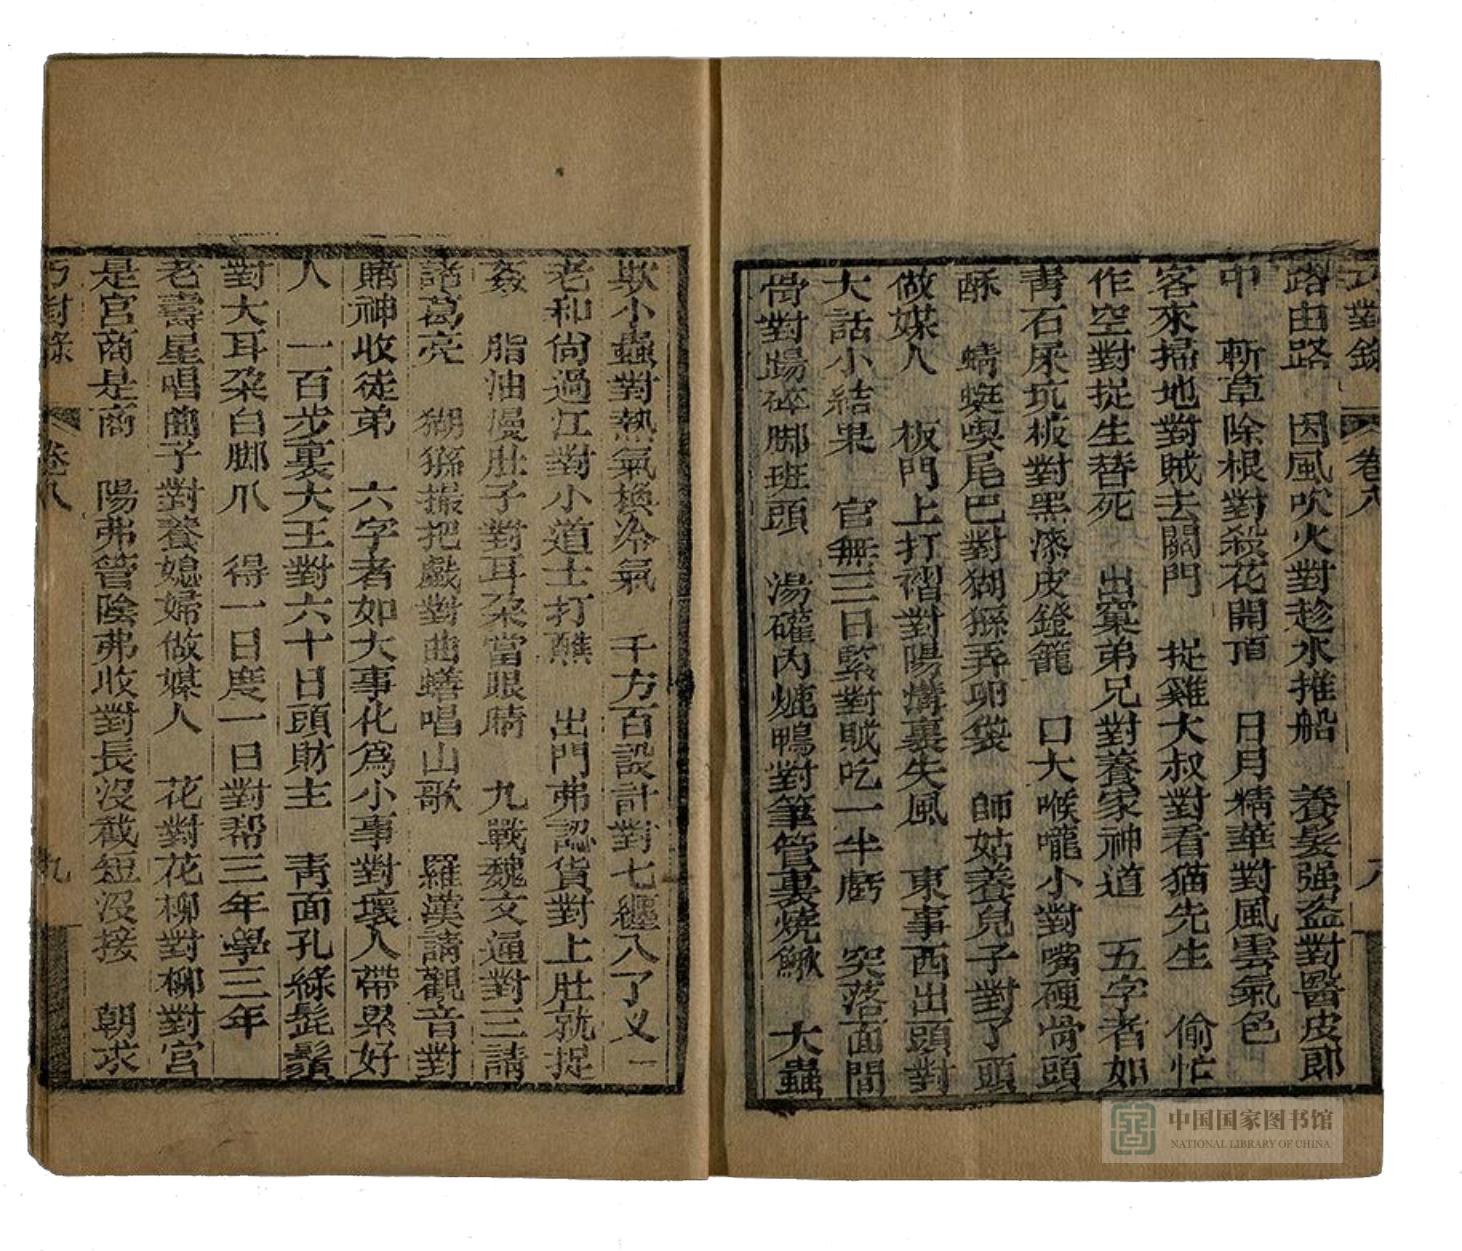 巧對錄 卷八 八
路由路　因風吹火對趁水推船　養髮强盗對醫皮郎
中　斬草除根對殺花開頂　日月精華對風雲氣色
客來掃地對賊去關門　捉雞大叔對看猫先生　偷忙
作空對捉生替死　出窠弟兄對養家神道　五字者如
青石屎坑板對黑漆皮鐙籠　口大喉嚨小對嘴硬骨頭
酥　蜻蜓喫尾巴對猢猻弄卵袋　師姑養兒子對了頭
做媒人　板門上打褶對陽溝裏失風　東事西出頭對
大話小結果　官無三日緊對賊吃一半虧　突落面間
骨對踼碎脚班頭　湯礶內熝鴨對筆管裏燒鰍　大蟲
欺小蟲對熱氣換冷氣　千方百設計對七纏八了乂一
老和尙過江對小道士打醮　出門弗認貨對上肚就捉
姦　脂油漫肚子對耳朶當眼睛　九戰魏文通對三請
諸葛亮　猢猻撮把戲對曲蟮唱山歌　羅漢請觀音對
賭神收徒弟　六字者如大事化爲小事對壞人帶累好
人　一百步裏大王對六十日頭財主　靑面孔綠髭鬚
對大耳朶白脚爪　得一日度一日對帮三年學三年
老壽星唱曲子對養媳婦做媒人　花對花柳對柳對宮
是宮商是商　陽弗管陰弗收對長沒截短沒接　朝求
巧對錄 卷八 九
中国国家图书馆
NATIONAL LIBRARY OF CHINA